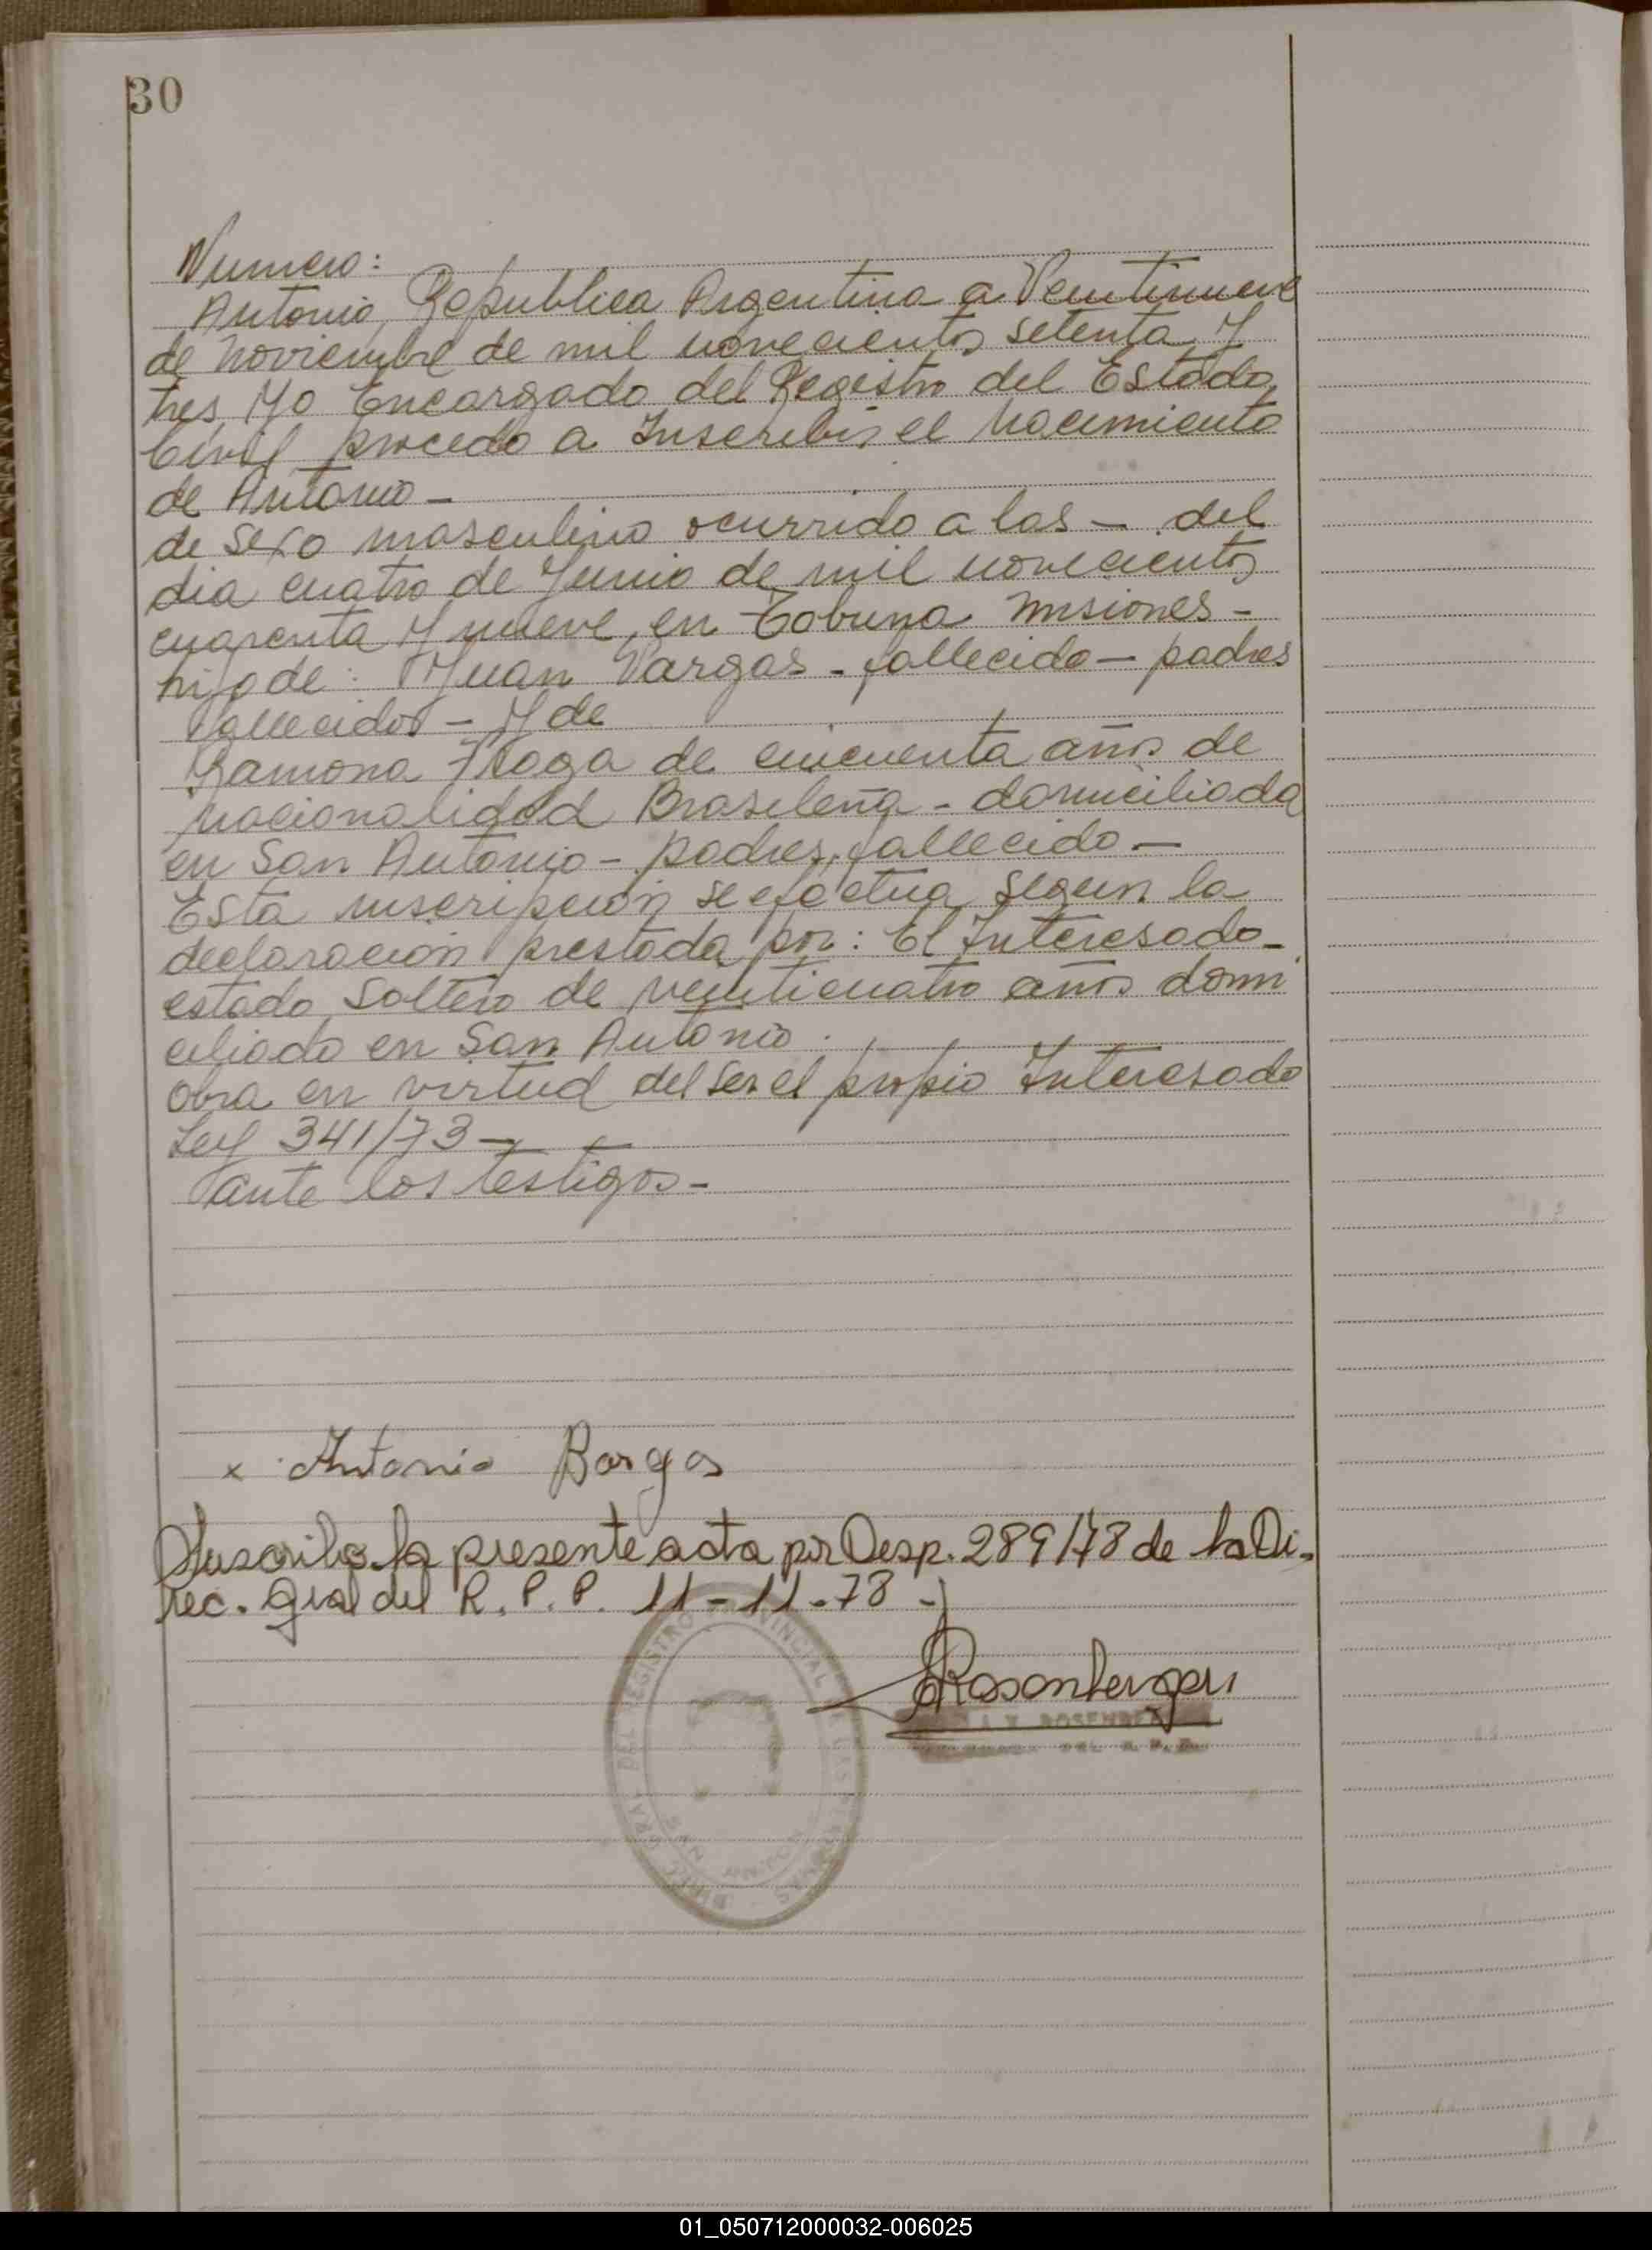 30
Numero:
Antonio, Republica Argentina a Veintinueve
de Noviembre de mil novecientos setenta y
tres, yo Encargado del Registro del Estado
Civil procedo a Inscribir el Nacimiento
de Antonio —
de sexo masculino ocurrido a las — del
dia cuatro de Junio de mil novecientos
cuarenta y nueve, en Tobuna Misiones -
hijo de: Juan Vargas - fallecido — padres
fallecidos — y de
Ramona Fraga de cincuenta años de
nacionalidad Brasileña - domiciliada
en San Antonio - padres, fallecido —
Esta inscripcion se efectua segun la
declaracion prestada por: El Interesado -
estado soltero de veinticuatro años domi
ciliado en San Antonio .
obra en virtud del ser el propio Interesado
Ley 341/73 —
ante los testigos -
x Antonio Bargas
Suscribo la presente acta por Desp. 289/78 de la Di-
rec. Gral del R. P. P. 11-11-78 -
Rosenberger
ROSENBE
DEL R. P.
DIREC. GRAL. DEL REGISTRO PROVINCIAL DE LAS PERSONAS
01_050712000032-006025